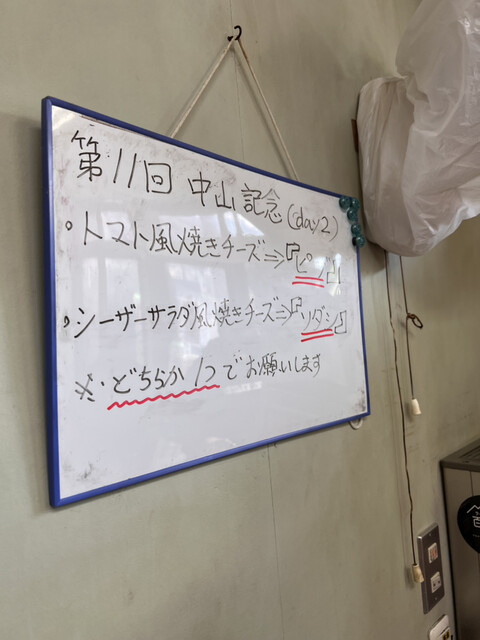 第11回 中山記念(day2)
・トマト風焼きチーズ⇒『ピザ』
・シーザーサラダ風焼きチーズ⇒『ソダシ』
※・どちらか1つでお願いします